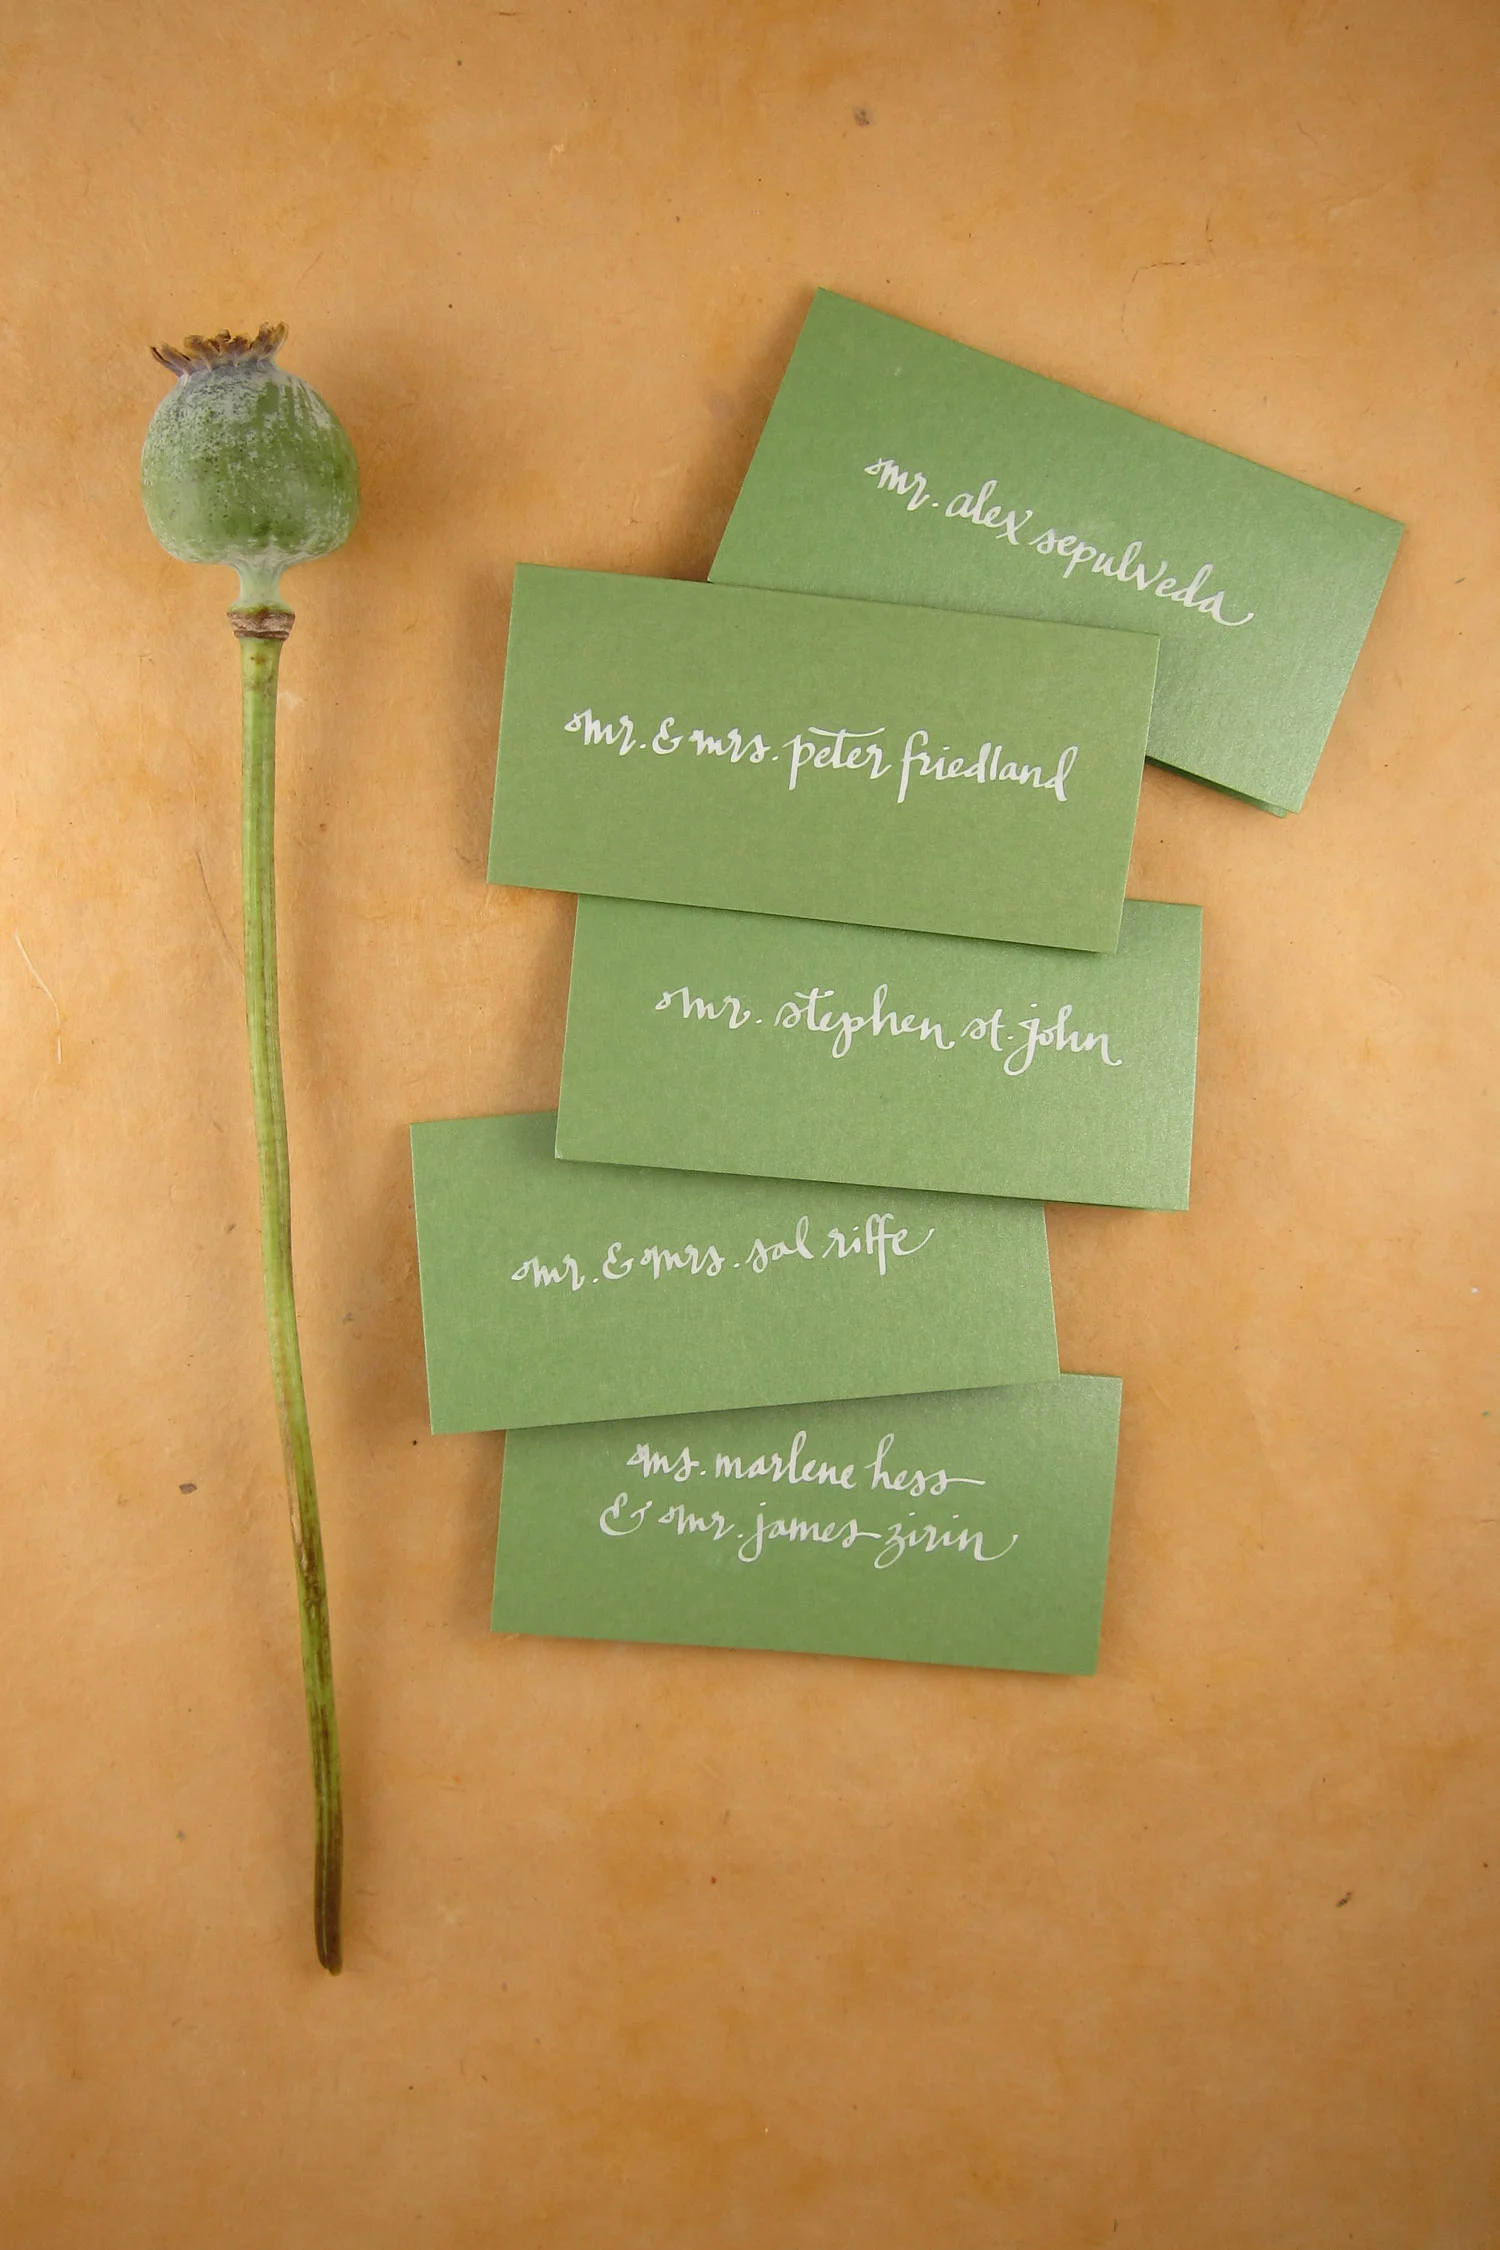 mr. alex sepulveda
mr. & mrs. peter friedland
mr. stephen st. john
mr. & mrs. sal riffe
ms. marlene hess
& mr. james zirin